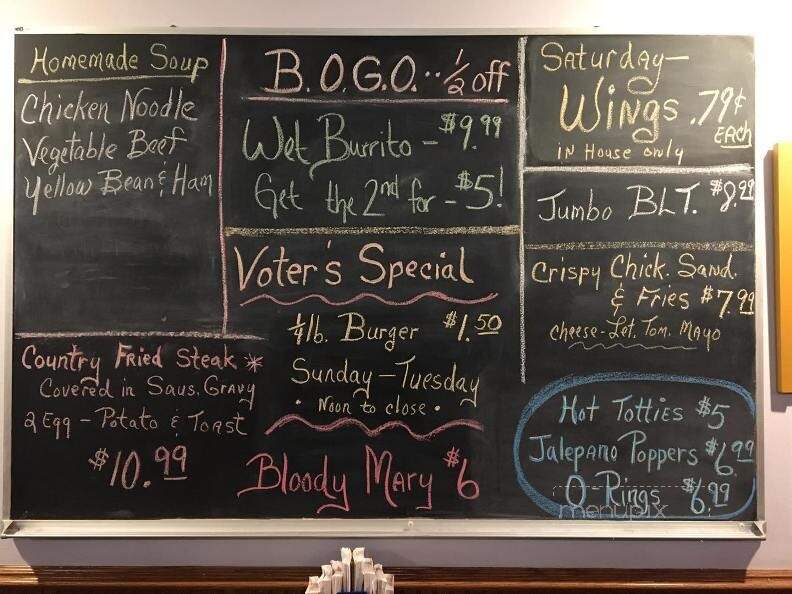 Homemade Soup
Chicken Noodle
Vegetable Beef
Yellow Bean & Ham
Country Fried Steak *
Covered in Saus. Gravy
2 Egg - Potato & Toast
$10.99
B.O.G.O... 1/2 off
Wet Burrito - $9.99
Get the 2nd for - $5!
Voter's Special
1/4 lb. Burger $1.50
Sunday - Tuesday
• Noon to close •
Bloody Mary $6
Saturday -
Wings .79¢
Each
in House only
Jumbo BLT. $8.99
Crispy Chick. Sand.
& Fries $7.99
cheese - Let. Tom. Mayo
Hot Totties $5
Jalepano Poppers $6.99
O-Rings $6.99
menupix